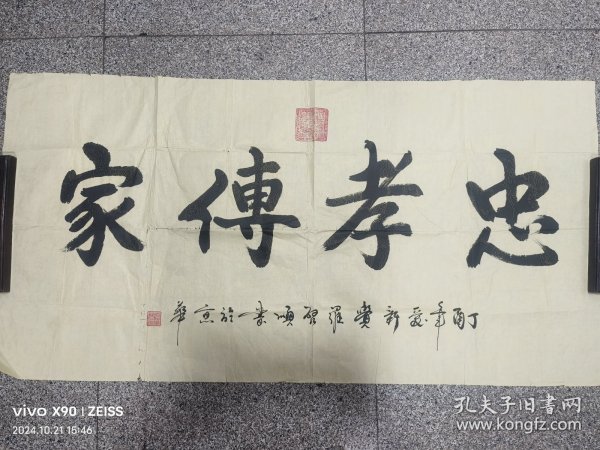 忠孝傳家
丁酉年愛新覺羅啓頌書於京華
vivo X90 | ZEISS
2024.10.21 15:46
孔夫子旧书网
www.kongfz.com